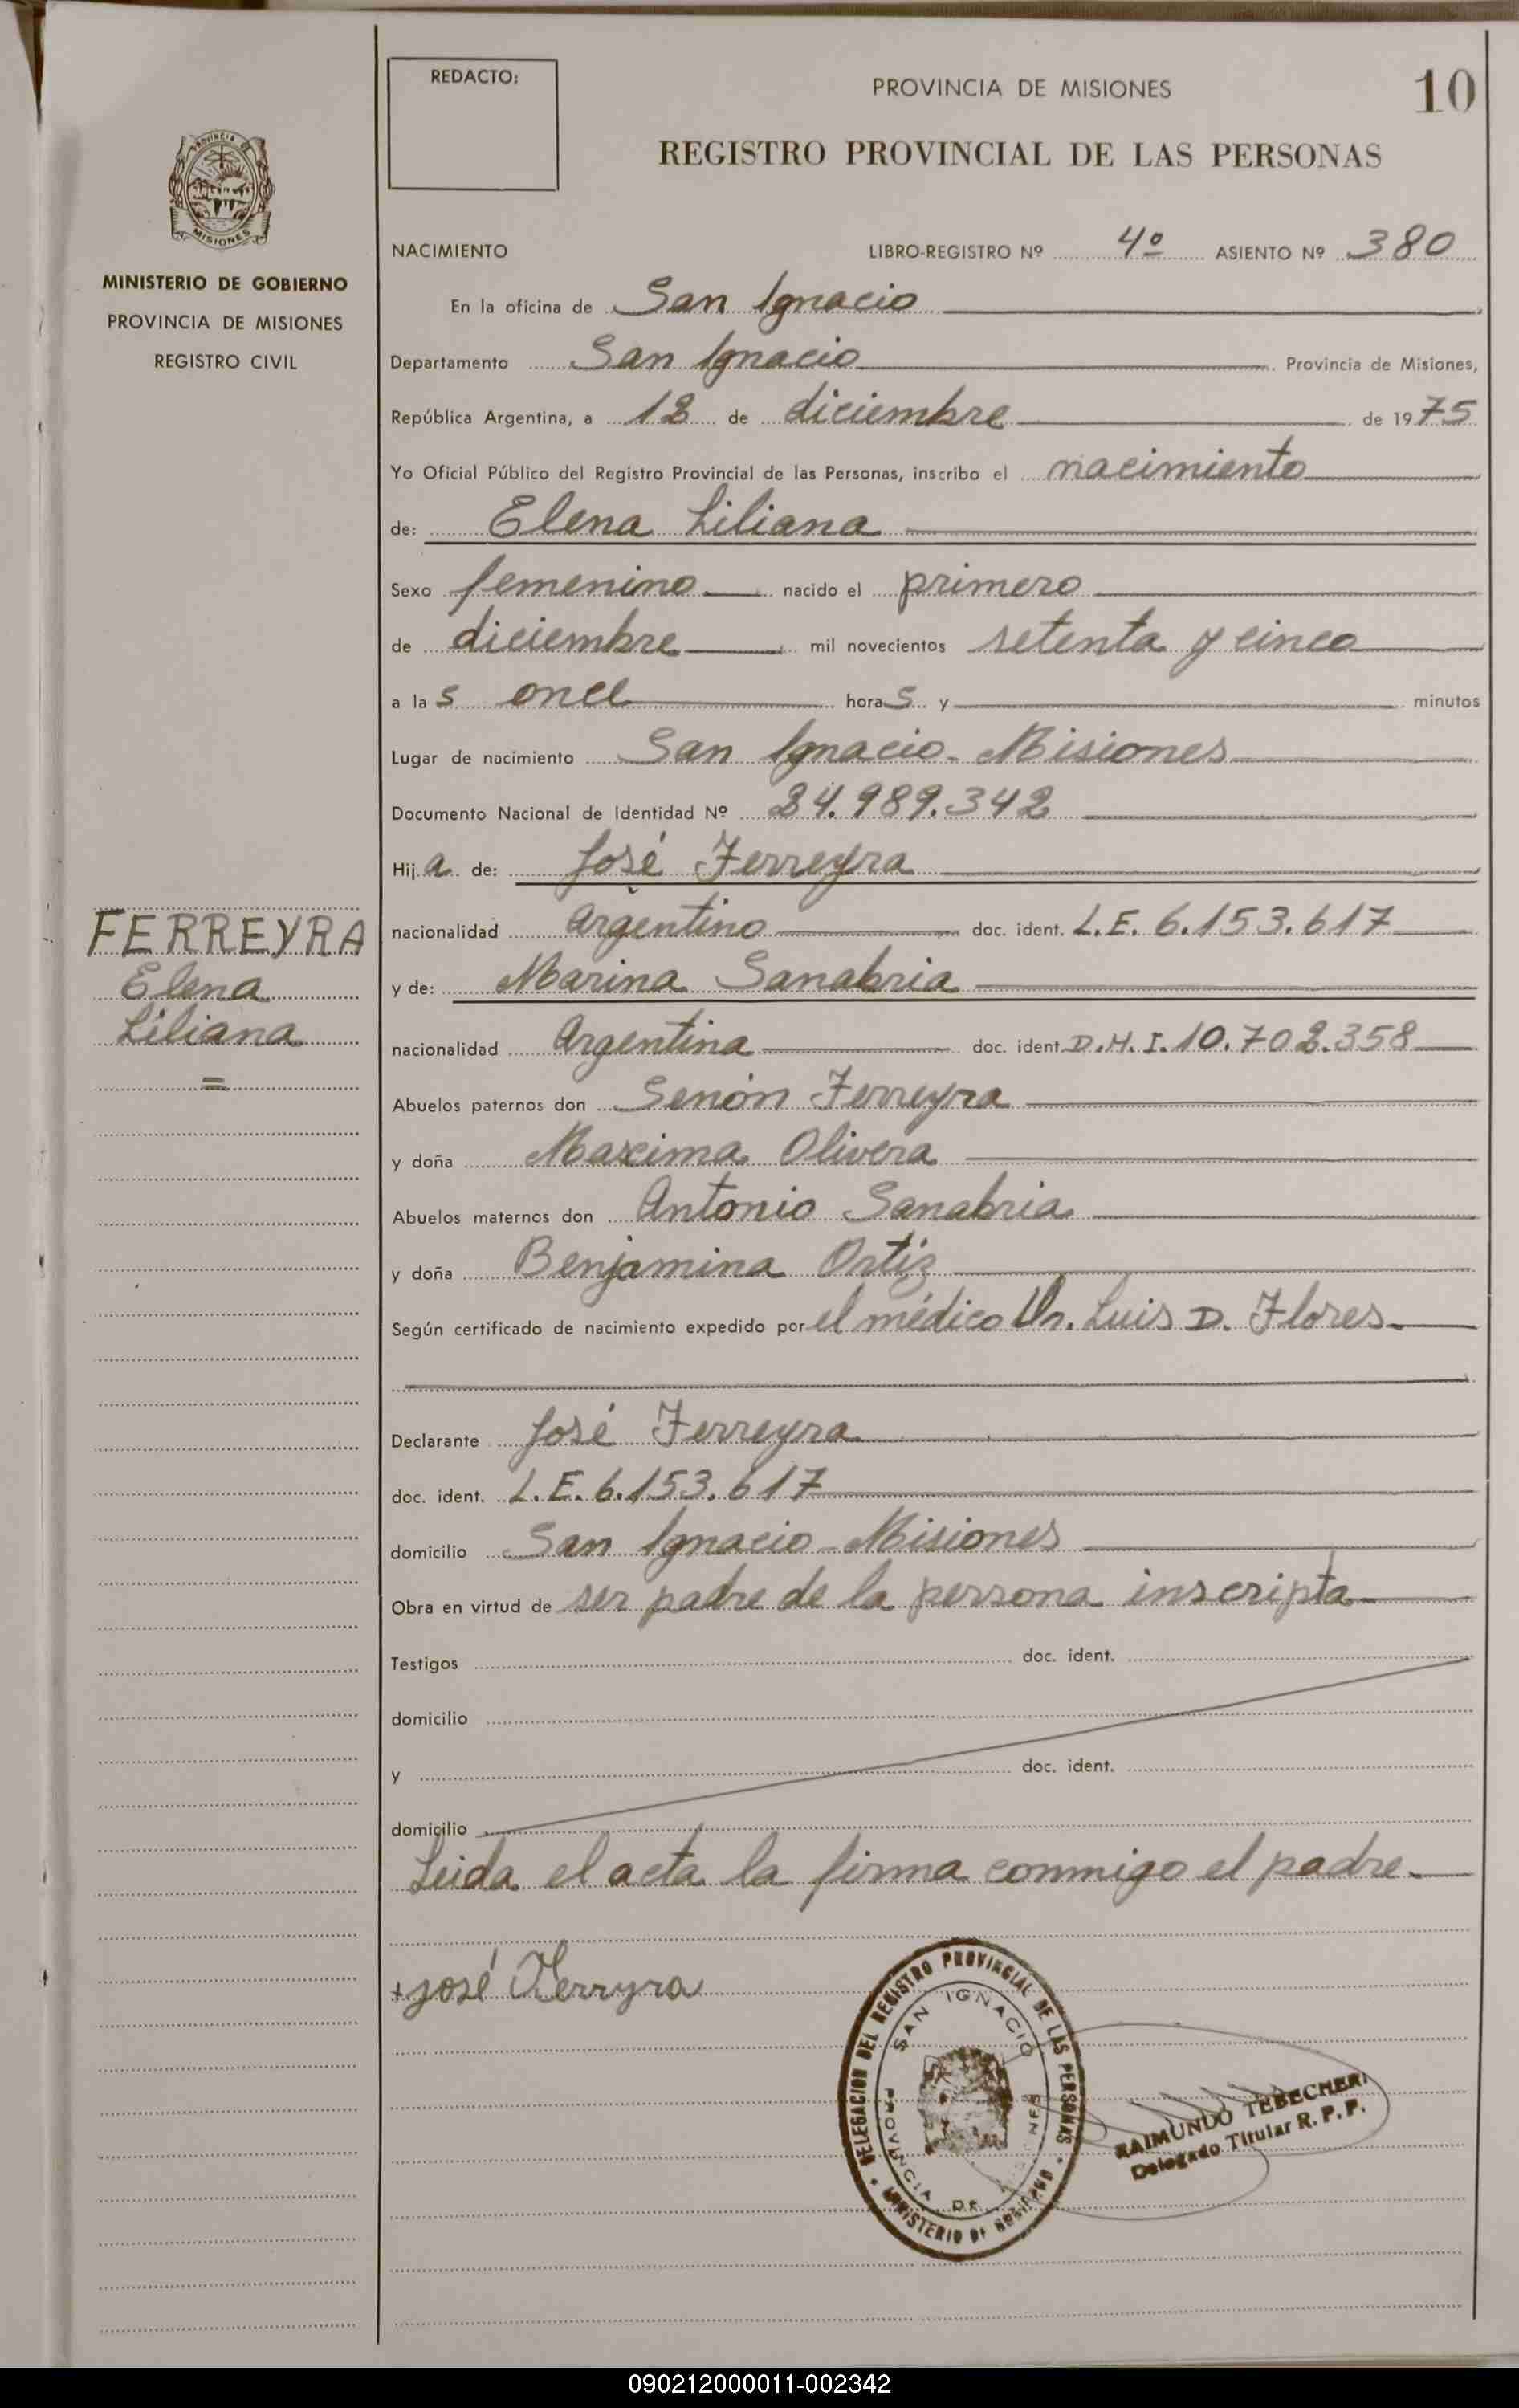 REDACTO:
PROVINCIA DE MISIONES
10
REGISTRO PROVINCIAL DE LAS PERSONAS
PROVINCIA DE
MISIONES
MINISTERIO DE GOBIERNO
PROVINCIA DE MISIONES
REGISTRO CIVIL
NACIMIENTO LIBRO-REGISTRO Nº 4º ASIENTO Nº 380
En la oficina de San Ignacio
Departamento San Ignacio Provincia de Misiones,
República Argentina, a 12 de diciembre de 1975
Yo Oficial Público del Registro Provincial de las Personas, inscribo el nacimiento
de: Elena Liliana
Sexo femenino nacido el primero
de diciembre mil novecientos setenta y cinco
a las once horas y minutos
Lugar de nacimiento San Ignacio - Misiones
Documento Nacional de Identidad Nº 24.989.342
Hija de: José Ferreyra
nacionalidad Argentino doc. ident. L.E. 6.153.617
y de: Marina Sanabria
nacionalidad Argentina doc. ident. D.N.I. 10.702.358
Abuelos paternos don Senón Ferreyra
y doña Maxima Olivera
Abuelos maternos don Antonio Sanabria
y doña Benjamina Ortiz
Según certificado de nacimiento expedido por el médico Dr. Luis D. Flores
Declarante José Ferreyra
doc. ident. L.E. 6.153.617
domicilio San Ignacio - Misiones
Obra en virtud de ser padre de la persona inscripta
Testigos doc. ident.
domicilio
y doc. ident.
domicilio
Leida el acta la firma conmigo el padre.
+ José Ferryra
FERREYRA
Elena
Liliana
=
DELEGACION DEL REGISTRO PROVINCIAL DE LAS PERSONAS
MINISTERIO DE GOBIERNO
SAN IGNACIO
PROVINCIA DE MISIONES
RAIMUNDO TEBECHERI
Delegado Titular R. P. P.
090212000011-002342